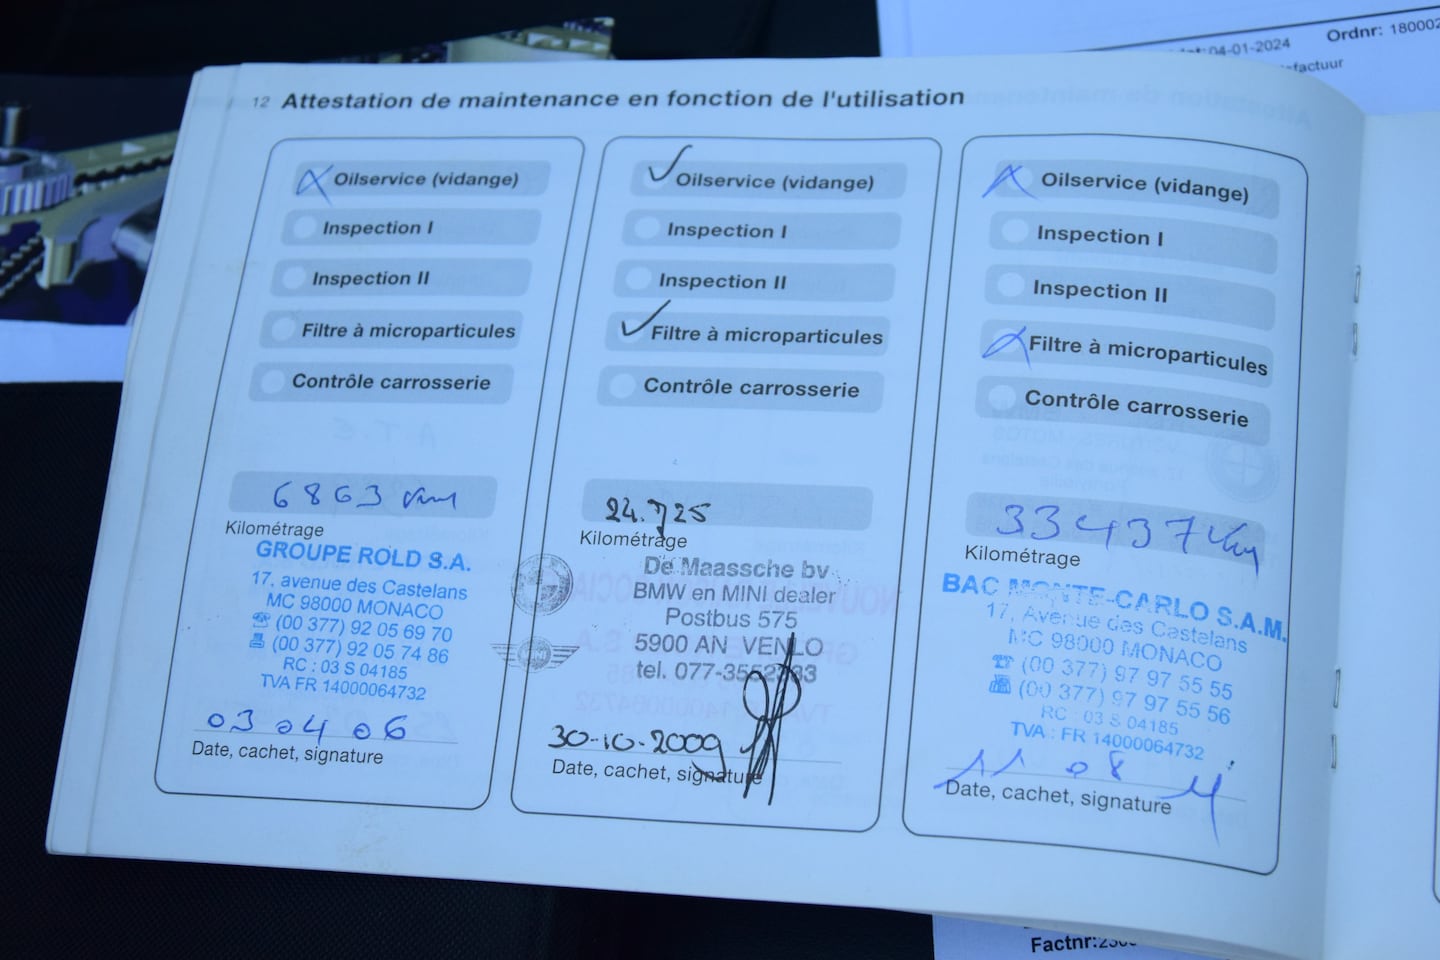 04-01-2024
Ordnr: 180002
factuur
12 Attestation de maintenance en fonction de l'utilisation
Oilservice (vidange)
Inspection I
Inspection II
Filtre à microparticules
Contrôle carrosserie
6863 km
Kilométrage
GROUPE ROLD S.A.
17, avenue des Castelans
MC 98000 MONACO
(00 377) 92 05 69 70
(00 377) 92 05 74 86
RC : 03 S 04185
TVA FR 14000064732
03 04 06
Date, cachet, signature
Oilservice (vidange)
Inspection I
Inspection II
Filtre à microparticules
Contrôle carrosserie
24.725
Kilométrage
De Maassche bv
BMW en MINI dealer
Postbus 575
5900 AN VENLO
tel. 077-3552
MINI
30-10-2009
Date, cachet, signature
Oilservice (vidange)
Inspection I
Inspection II
Filtre à microparticules
Contrôle carrosserie
33437 km
Kilométrage
BAC MONTE-CARLO S.A.M.
17, Avenue des Castelans
MC 98000 MONACO
(00 377) 97 97 55 55
(00 377) 97 97 55 56
RC : 03 S 04185
TVA : FR 14000064732
11 08
Date, cachet, signature
Factnr: